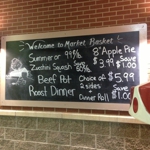 Welcome to Market Basket
Summer or 99¢ 8" Apple Pie
Zucchini Squash Save $3.99 Save $1.00
Beef Pot Choice of $5.99
Roast Dinner 2 sides + Save
Dinner Roll $1.00